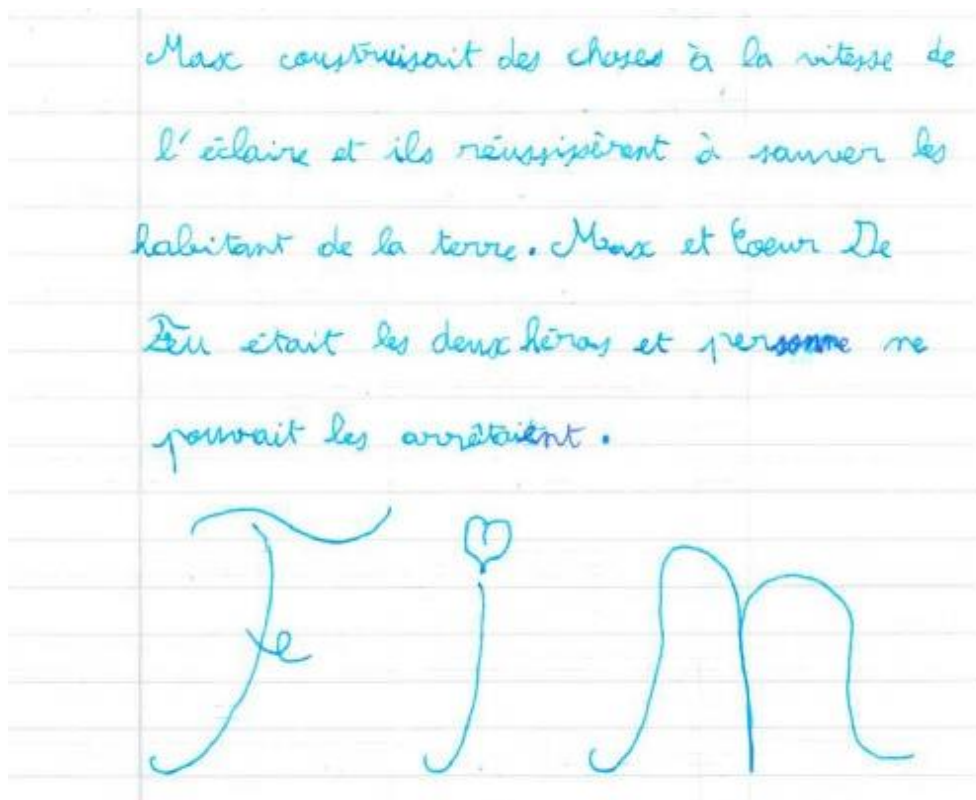 Max construisait des choses à la vitesse de
l'éclaire et ils réussisèrent à sauver les
habitant de la terre. Max et Coeur De
Feu était les deux héros et personne ne
pouvait les arrêtaient.
Fin